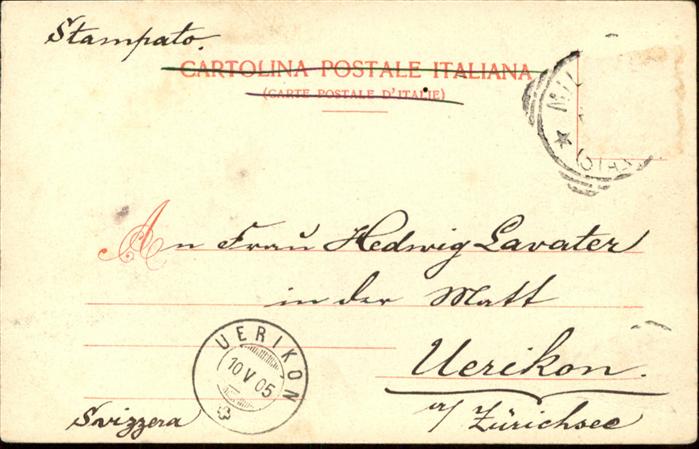 Stampato.
CARTOLINA POSTALE ITALIANA
(CARTE POSTALE D'ITALIE)
An Frau Hedwig Lavater
in der Matt
Uerikon.
a/ Zürichsee
Svizzera
UERIKON
10 V 05